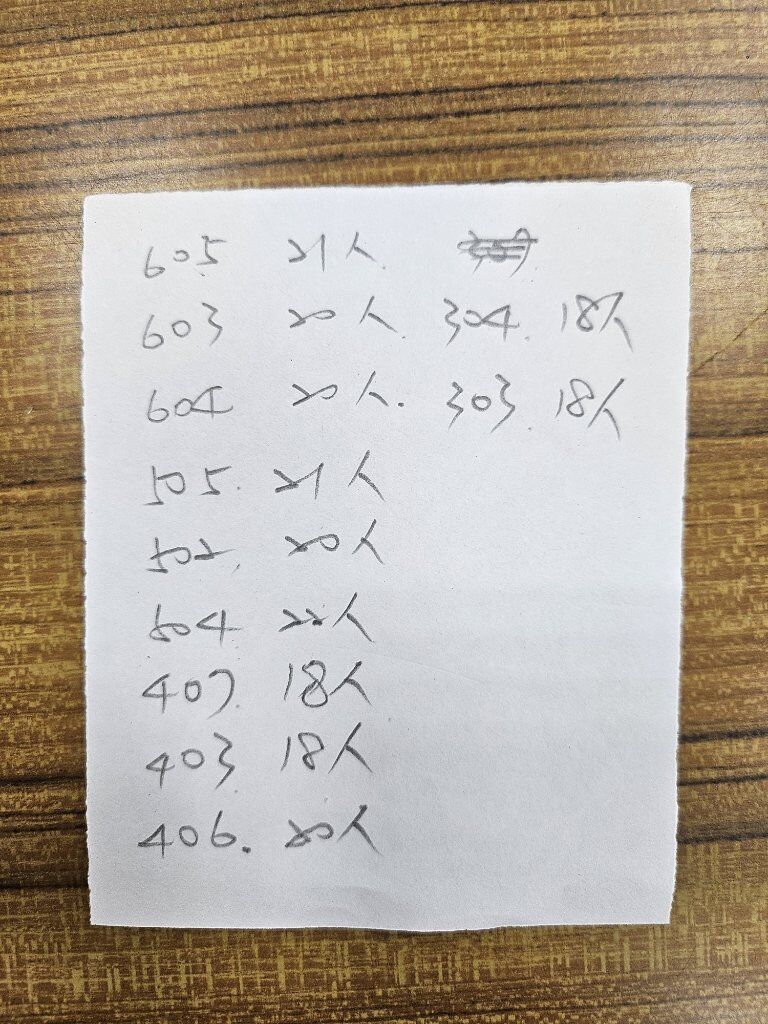 605 21人
603 20人. 304. 18人
604 20人. 303. 18人
505. 21人
502. 20人
504 22人
407. 18人
403 18人
406. 20人